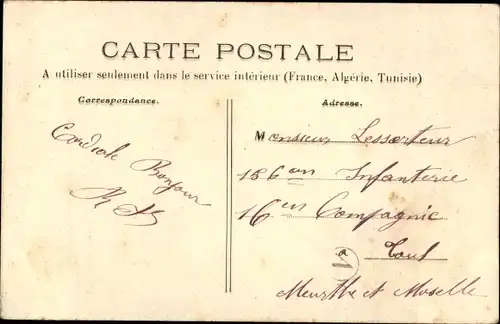 CARTE POSTALE
A utiliser seulement dans le service intérieur (France, Algérie, Tunisie)
Correspondance.
Adresse.
Cordiale Bonjour
Monsieur
Infanterie
16em Compagnie
à Toul
Meurthe et Moselle